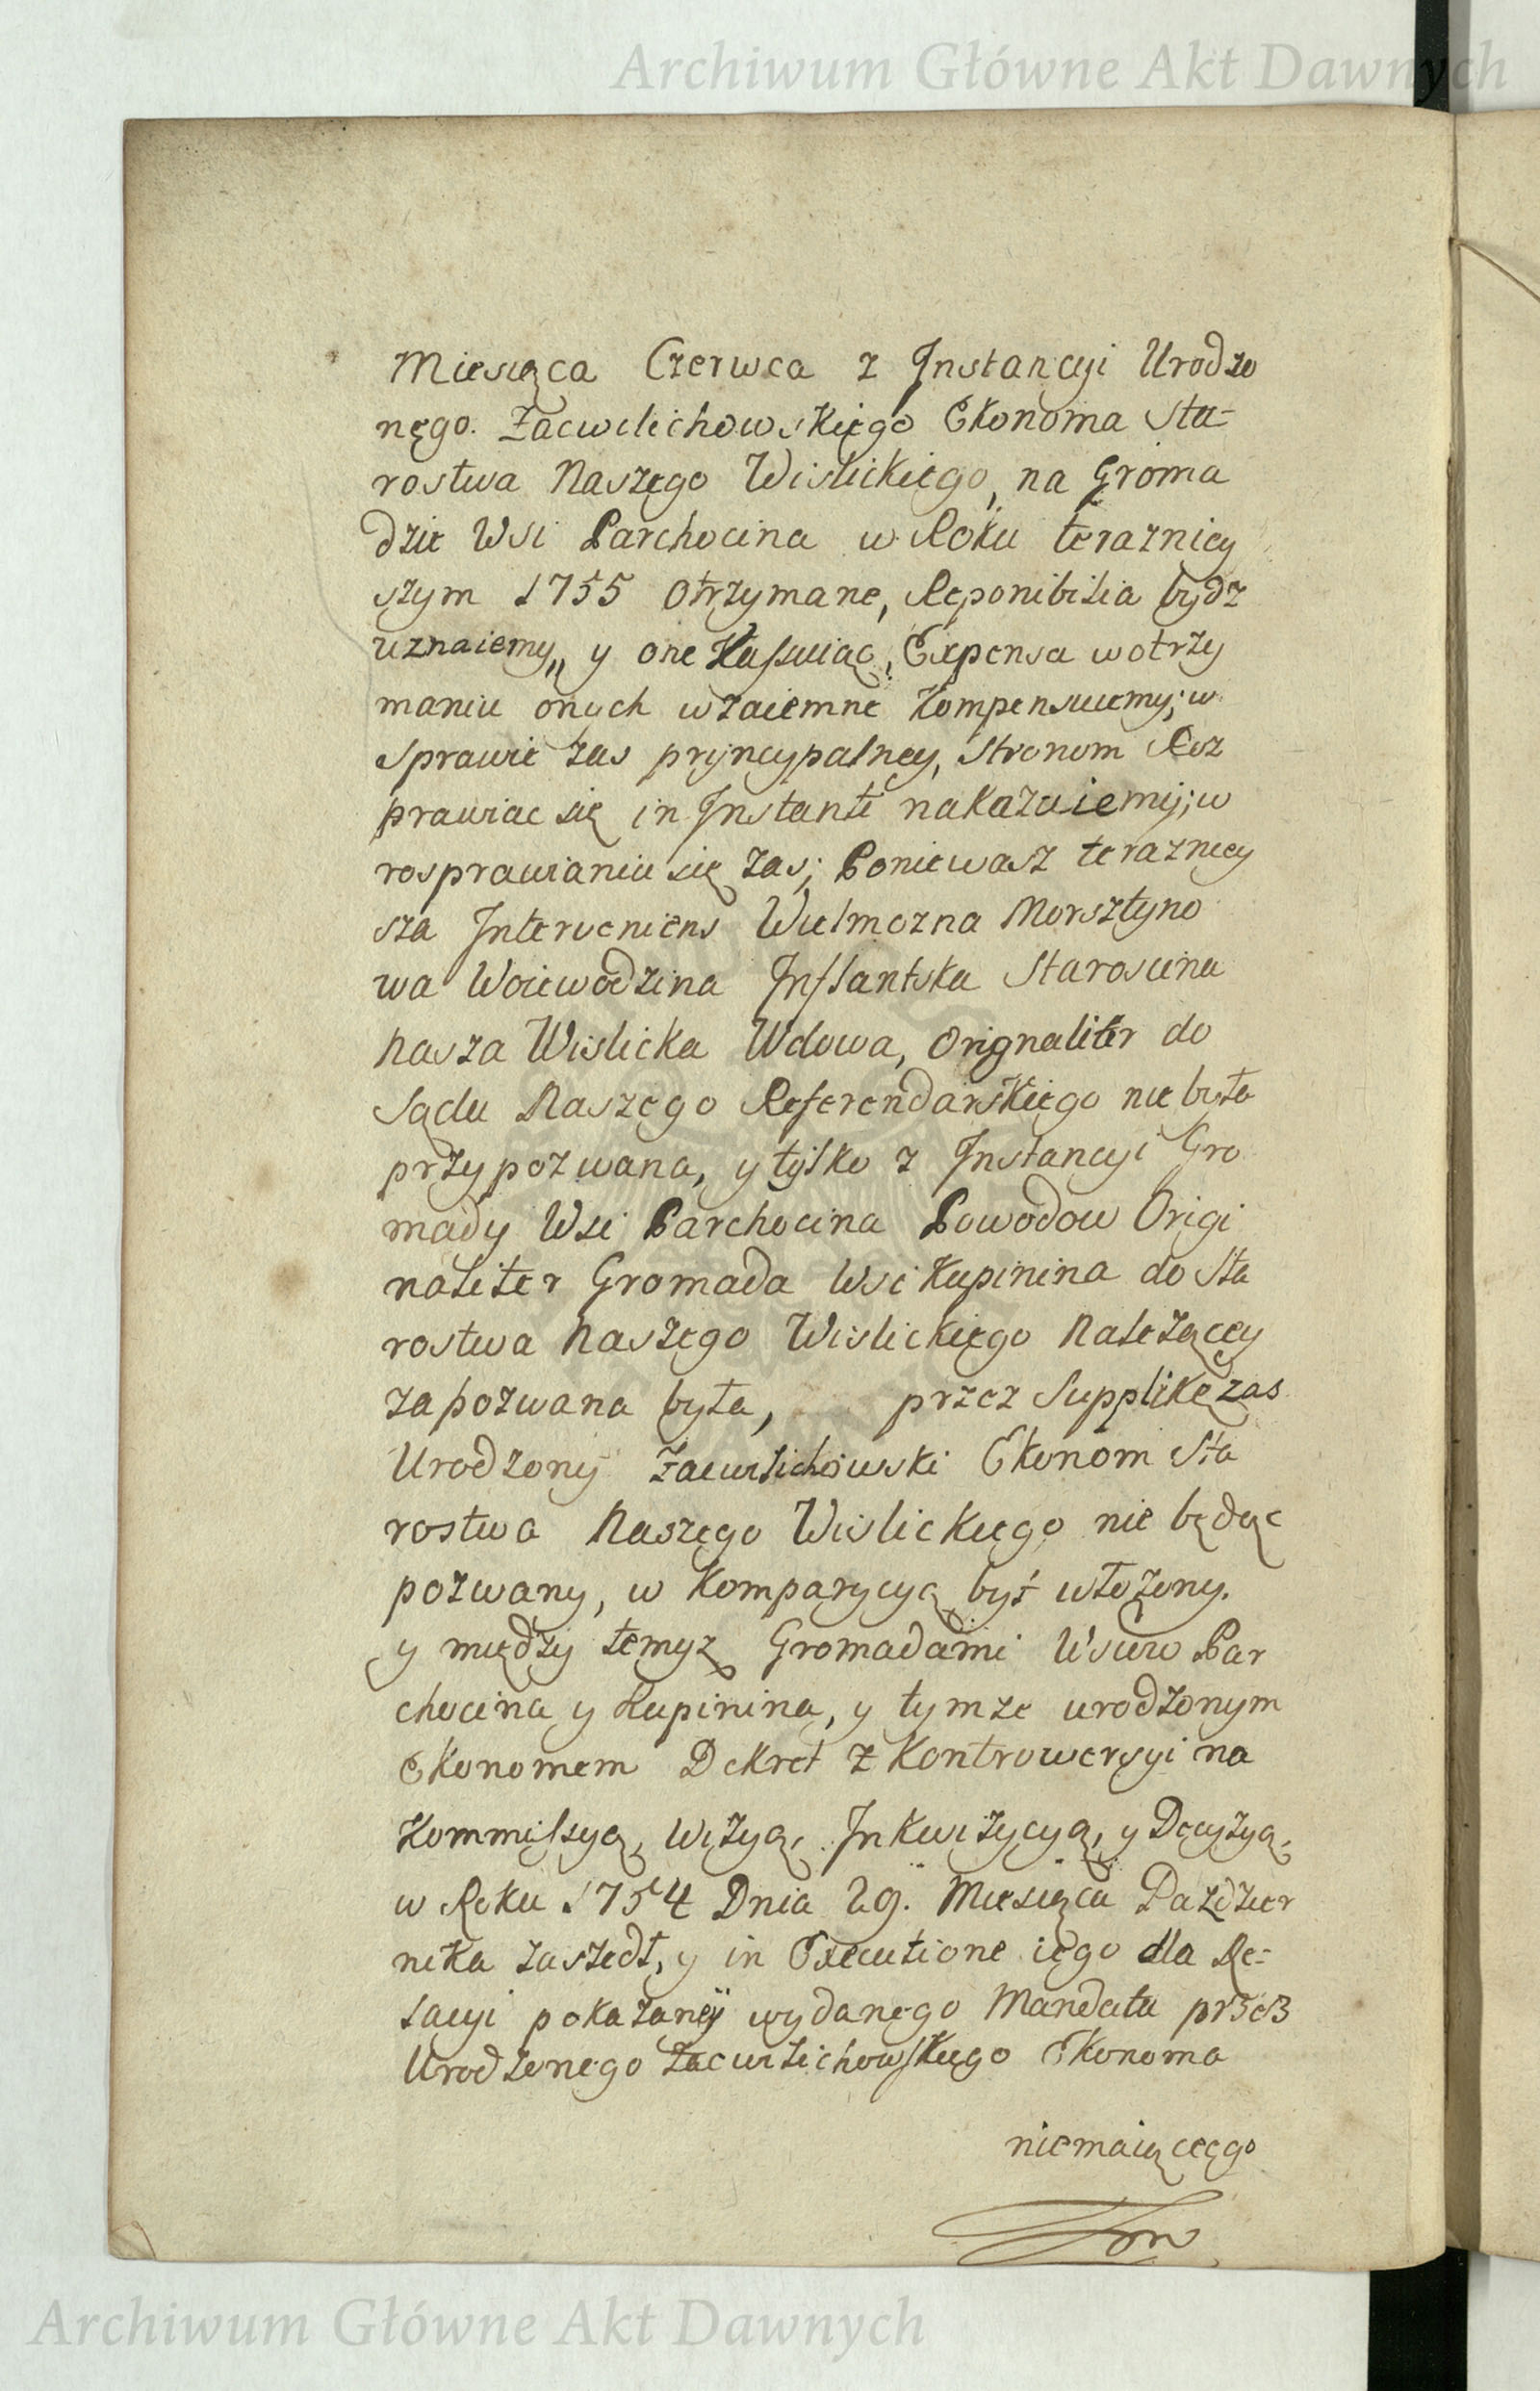 Archiwum Główne Akt Dawnych
Miesiąca Czerwca z Instancyi Urodzo
nęgo. Zacwilichowskięgo Ekonoma Sta=
rostwa Naszęgo Wislickięgo, na Groma
dzie Wsi Parchocina w Roku teraznięy
szym 1755 otrzymane, Reponibilia bydz
uznaiemy,, y one Kassuiąc, Expensa wotrzy
maniu onych wzaiemne kompensuiemy; w
Sprawie zas pryncypalnęy, Stronom Roz
prawiac się in Instanti nakazuiemy; w
rosprawianiu się zas; Poniewasz teraznięy
sza Interveniens Wielmozna Morsztyno
wa Woiewodzina Inflantska Staroscina
nasza Wislicka Wdowa, Orignaliter do
Sądu Naszęgo Referendarskięgo nie była
przypozwana, y tylko z Instancyi Gro
mady Wsi Parchocina Powodow Origi
naliter Gromada Wsi Kupinina do Sta
rostwa Naszęgo Wislickięgo Nalezącęy
zapozwana była, przez Supplikę zas
Urodzony Zacwilichowski Ekonom Sta
rostwa Naszęgo Wislickięgo nie będąc
pozwany, w Komparycyą był włozony.
y między temyz Gromadami Wsiow Par
chocina y Kupinina, y tymze urodzonym
Ekonomem Dekret z Kontrowersyi na
Kommissyą, Wizyą, Inkwizycyą, y Decyzyą,
w Roku 1754 Dnia 29. Miesiąca Pazdzier
nika zaszedł, y in Executione ięgo dla Re=
lacyi pokazanęy wydanęgo Mandatu przez
Urodzonego Zacwilichowskięgo Ekonoma
niemaiącęgo
Archiwum Główne Akt Dawnych